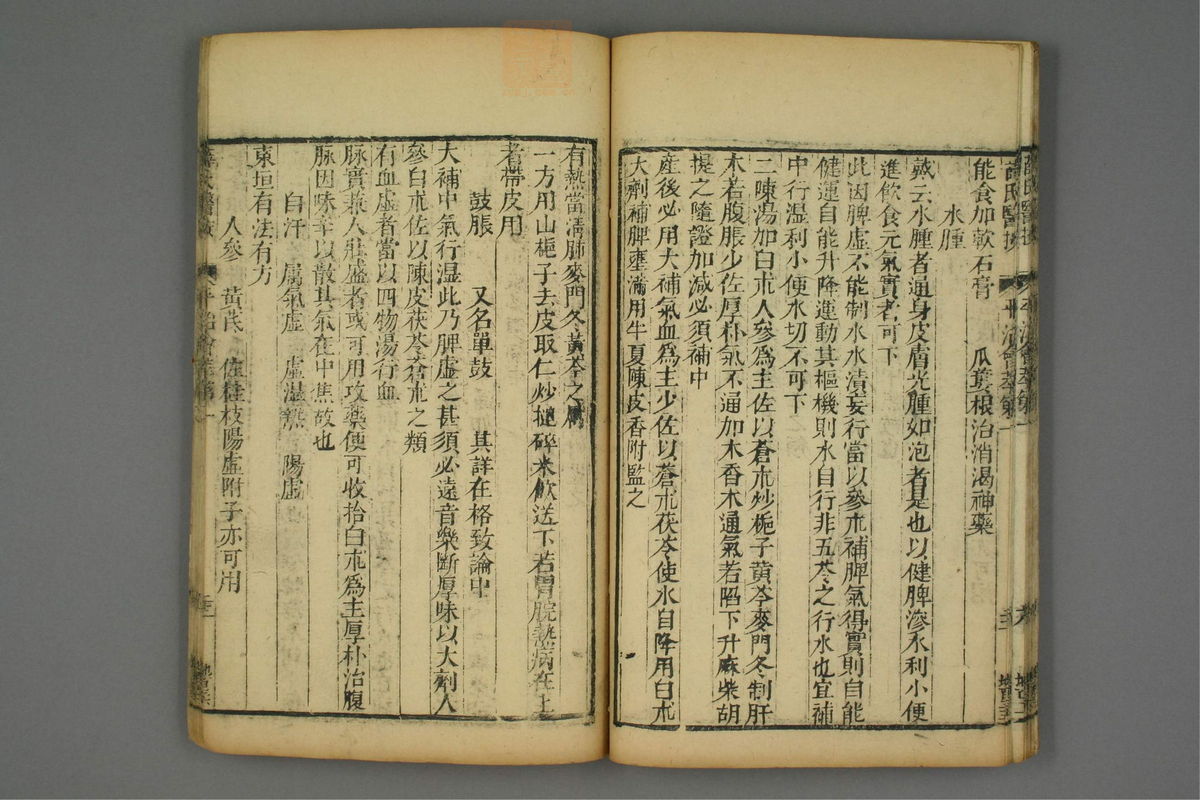 薛氏醫按
平治會萃
能食加軟石膏　瓜蔞根治消渴神藥
水腫
戴云水腫者通身皮膚光腫如泡者是也以健脾滲水利小便
進飲食元氣實者可下
此因脾虛不能制水水漬妄行當以參朮補脾氣得實則自能
健運自能升降運動其樞機則水自行非五苓之行水也宜補
中行湿利小便水切不可下
二陳湯加白朮人參爲主佐以蒼朮炒梔子黃芩麥門冬制肝
木若腹脹少佐厚朴氣不通加木香木通氣若陷下升麻柴胡
提之隨證加減必須補中
産後必用大補氣血爲主少佐以蒼朮茯苓使水自降用白朮
大劑補脾壅滿用半夏陳皮香附監之
有熱當清肺麥門冬黃芩之屬
一方用山梔子去皮取仁炒搥碎米飲送下若胃脘熱病在上
者帶皮用
鼓脹　又名單鼓　其詳在格致論中
大補中氣行湿此乃脾虛之甚須必遠音樂斷厚味以大劑人
參白朮佐以陳皮茯苓蒼朮之類
有血虛者當以四物湯行血
脉實兼人壯盛者或可用攻藥便可收拾白朮爲主厚朴治腹
脉因味辛以散其氣在中焦故也
自汗　屬氣虛　虛湿熱　陽虛
東垣有法有方
人參　黃芪　佐桂枝陽虛附子亦可用